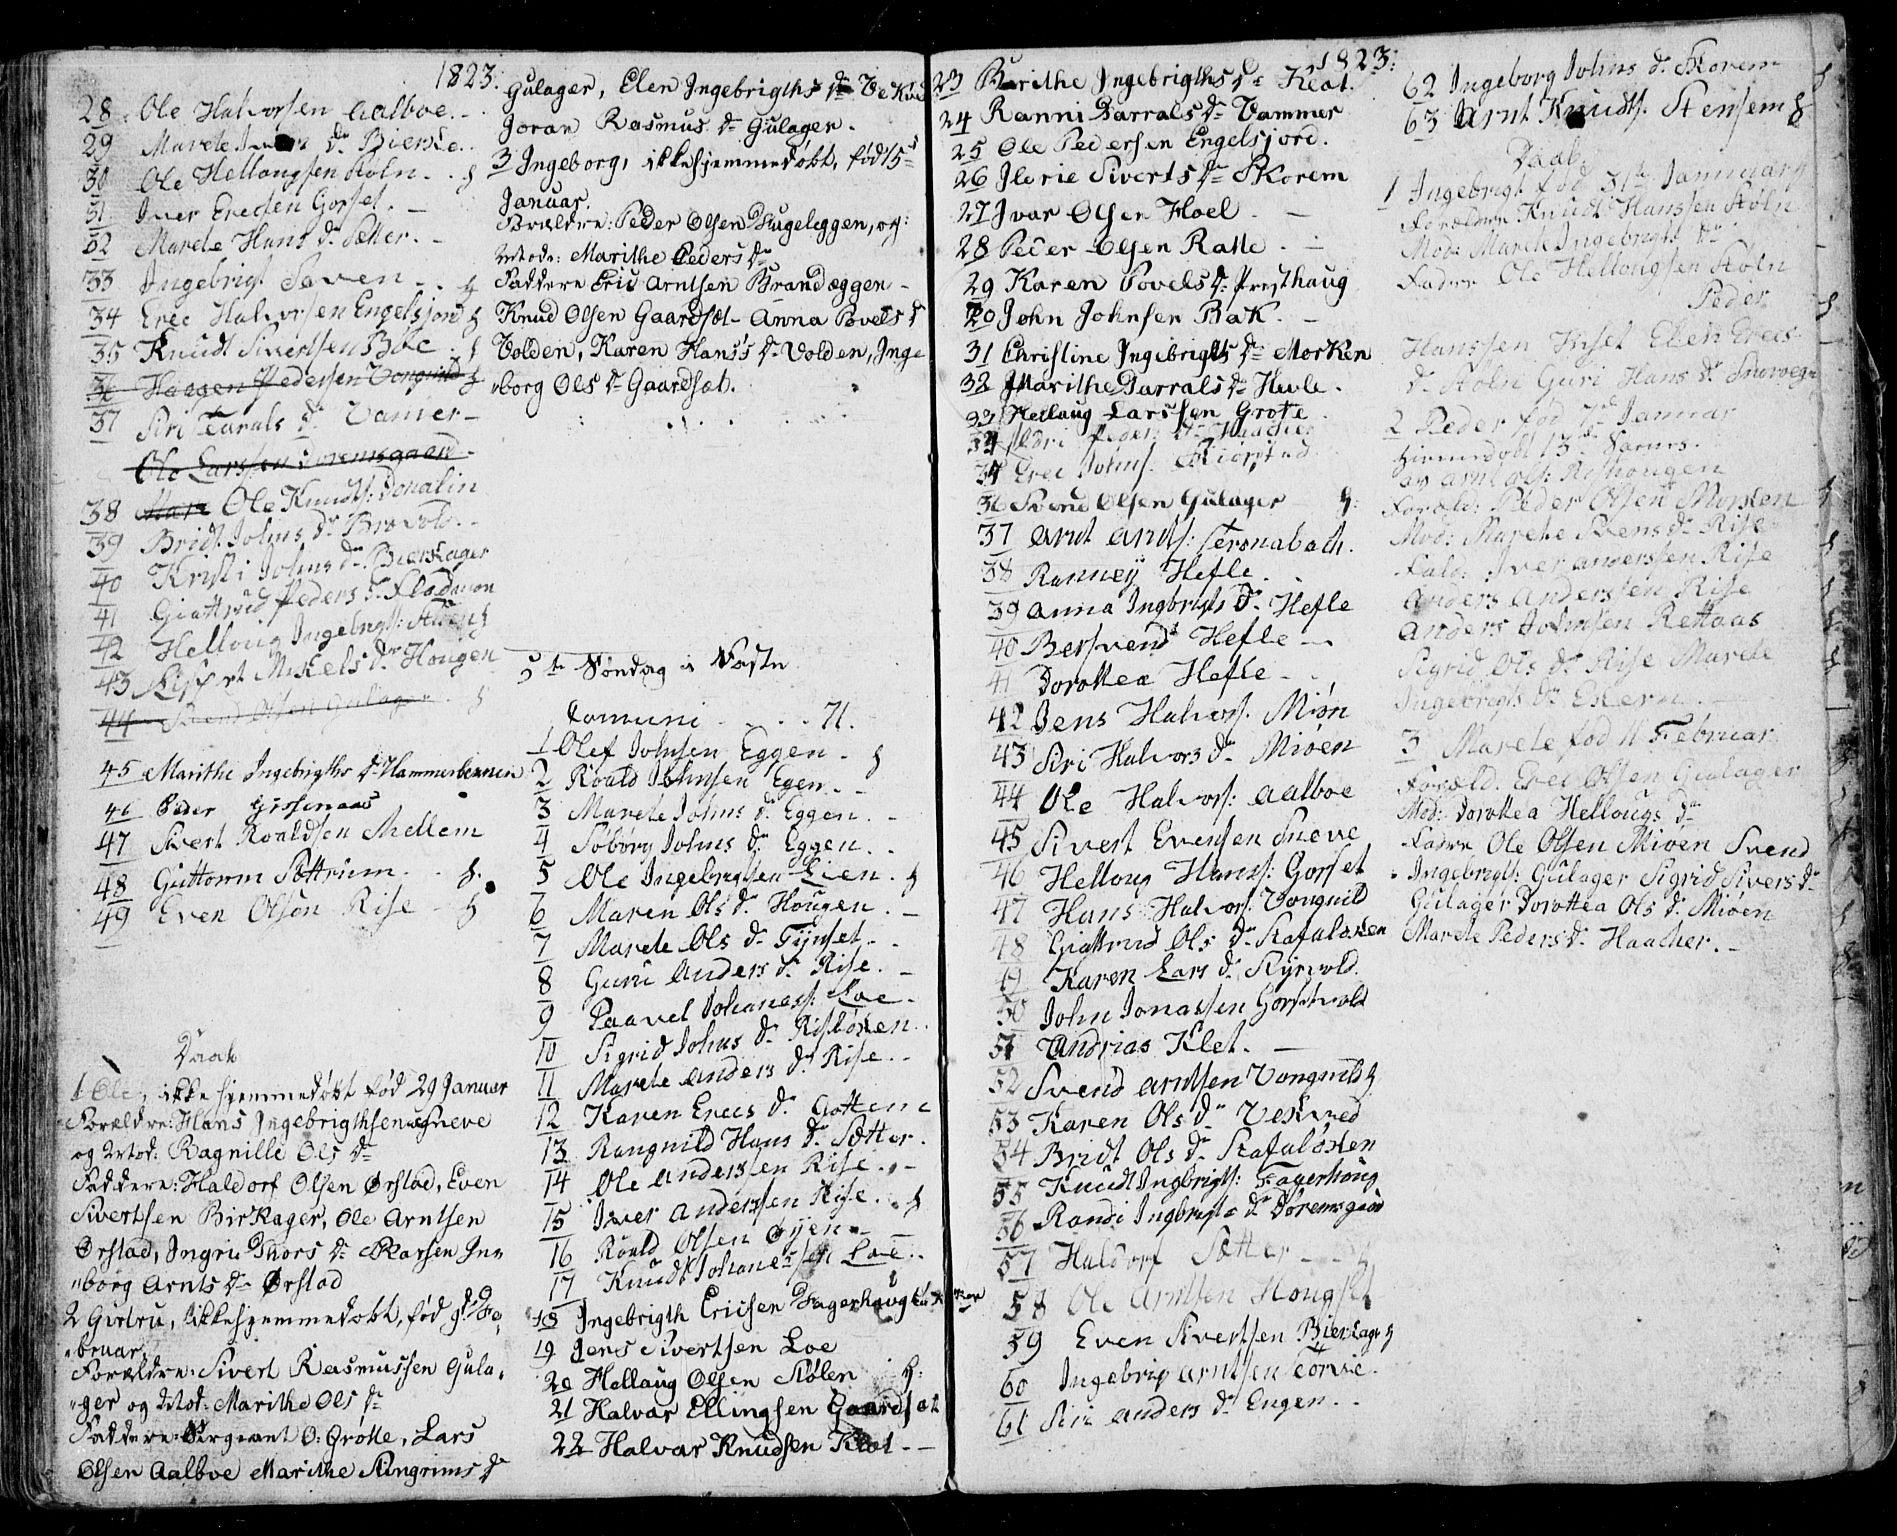 1823.
28 Ole Halvorsen Aalboe. -
29 Marete Dr. Bierke.
30 Ole Hellougsen Støln. . §
31 Iver Erecsen Gorset. -
32 Marete Hans Dr. Sætter. -
33 Ingebrigt Saven - . §
34 Erec Halvorsen Engelsjord §
35 Knudt Sivertsen Böe . §
36 Haagen Pedersen Vongnild §
37 Siri Tarals Dr. Vamer -
Ole Larssen Dørremsgaard.
38 Mare Ole Knudts: Donalin
39 Bridt Johns Dr. Bravold. -
40 Kristi Johns Dr. Bierkager
41 Giattrud Peders Dr. Flodmon
42 Helloug Ingebrigts: Støln §
43 Lisbet Mikels Dr. Hougen
44 Svend Olsen Gulager . §
45 Marithe Ingebrigths Dr. Hammerbecken
46 Peder Gissenaas
47 Sivert Roaldsen Mellem
48 Guttorm Sættrum . . §.
49 Even Olsen Rise - §
Daab
1 Ole, ikke hjemmedøbt fød 29 Januar
Forældre: Hans Ingebrigthsen Sneve
og Mod: Ragnille Ols Dr
Faddere: Haldorf Olsen Ørstad, Even
Sivertsen Birkager, Ole Arntsen
Ørstad, Ingri Thors Dr. Skarsen Ing
"borg Arnts Dr. Ørstad
2 Girtru, ikke hjemmedøbt, fød 9de Fe
"bruar.
Forældre: Sivert Rasmussen Gula
"ger og Mod: Marithe Ols Dr
Faddere: Sergeant O: Grøtte, Lars
Olsen Aalboe Marithe Stingrims Dr
Gulager, Elen Ingebrigths Dr Vekved
Joran Rasmus Dr Gulager.
3 Ingeborg, ikke hjemmedøbt, født 5te
Januar.
Forældre: Peder Olsen Hugeleggen, og:
Mode: Marithe Peders Dr
Faddere Eric Arntsen Brandæggen -
Knud Olsen Gaardsæt - Anna Povels D
Volden, Karen Hans's Dr Volden, Inge
"borg Ols Dr Gaardsæt.
5te Søndag i Faste
Comuni . - . . 71.
1 Olef Johnsen Eggen - §
2 Roald Johnsen Egen. -
3 Marete Johns Dr. Eggen. -
4 Søbørg Johns Dr. Eggen. .
5 Ole Ingebrigtsen Lien . §
6 Maren Ols Dr. Hougen . -
7 Marete Ols Dr Tynset. .
8 Guru Anders Dr. Rise. -
9 Paavel Johaness: Loe -
10 Sigrid Johns Dr. Risløkken. .
11 Marete Anders Dr. Rise. -
12 Karen Erecs Dr. Gottem
13 Rangnild Hans Dr. Sætter.
14 Ole Anderssen Rise. -
15 Iver Anderssen Rise. §
16 Roald Olsen Øyen -
17 Knudt Johanessen Loe. .
18 Ingebrigth Ericsen Fagerhaug
19 Jens Sivertsen Loe
20 Hellaug Olsen Stølen . §:
21 Halvar Ellingsen Gaardsæt
22 Halvar Knudsen Klæt - -
1823:
23 Marithe Ingebrigths Dr Klæt.
24 Ranni Darrals Dr Vammer
25 Ole Pedersen Engelsjord.
26 Ilerie Siverts Dr Skorem
27 Ivar Olsen Hoel . -
28 Peder Olsen Ratte . -
29 Karen Povels Dr: Presthaug
30 John Johnsen Bak. -
31 Christine Ingebrigths Dr Morken
32 Marithe Darrals Dr Hevle.
33 Hellaug Larssen Grøtte.
34 Ildri Peders Dr Haacker
34 Erec Johns. Skiørstad
36 Svend Olsen Gulager - §:
37 Arnt Arnts: Seronabach.
38 Ranney Hefle. .
39 Anna Ingbrigts Dr. Hefle
40 Bersvend Hefle - -
41 Dorottea Hefle - .
42 Jens Halvors. Miøn
43 Siri Halvors Dr Miøen
44 Ole Halvors: Aalboe
45 Sivert Evensen Sneve
46 Helloug Hanss: Gorset
47 Hans Halvors. Vongnild
48 Giattrud Ols Dr. Stafaløkken
49 Karen Lars Dr. Skyrvold.
50 John Jonassen Gorsetvold
51 Andrias Klet. -
52 Svend Arntsen Vongnild §
53 Karen Ols Dr. Vekved
54 Bridt Ols Dr Stafaløkken
55 Knudt Ingbrigts: Fagerhoug
56 Randi Ingbrigts Dr Dørremsgaard
57 Haldorf Sætter - - §
58 Ole Arntsen Hougset
59 Even Sivertsen Bierkager §
60 Ingebrig Arntsen Torvie.
61 Siri Anders Dr Engen. .
62 Ingeborg Johns Dr. Skorem
63 Arnt Knudts. Stensem §
Daab
1 Ingebrigt fød 31te Januarij
Forældre Knudt Hanssen Støln
Mod: Marete Ingebrigts Dr
Fadere Ole Hellougsen Støln
Peder
Hanssen Viset Elen Erecs
Dr. Støln Guri Hans Dr. Snoveg
2 Peder fød 7de Januar
hiemedøbt 13de Sames.
av Arnt Ols: Risthougen
Foræld: Peder Olsen Morken
Mod: Marete Svens Dr Rise
Fadd: Iver Anderssen Rise
Anders Anderssen Rise
Anders Johnsen Rettaas
Sigrid Ols Dr. Rise Marete
Ingebrigts Dr. Ekern. -
3 Marete fød 11 Februar
Foræld. Erec Olsen Gulager
Mod: Dorottea Hellougs Dr
Fadere Ole Olsen Miøen Svend
Ingebrigts: Gulager Sigrid Sivers Dr
Gulager Dorottea Ols Dr. Miøen
Marete Peders Dr Haacker. -